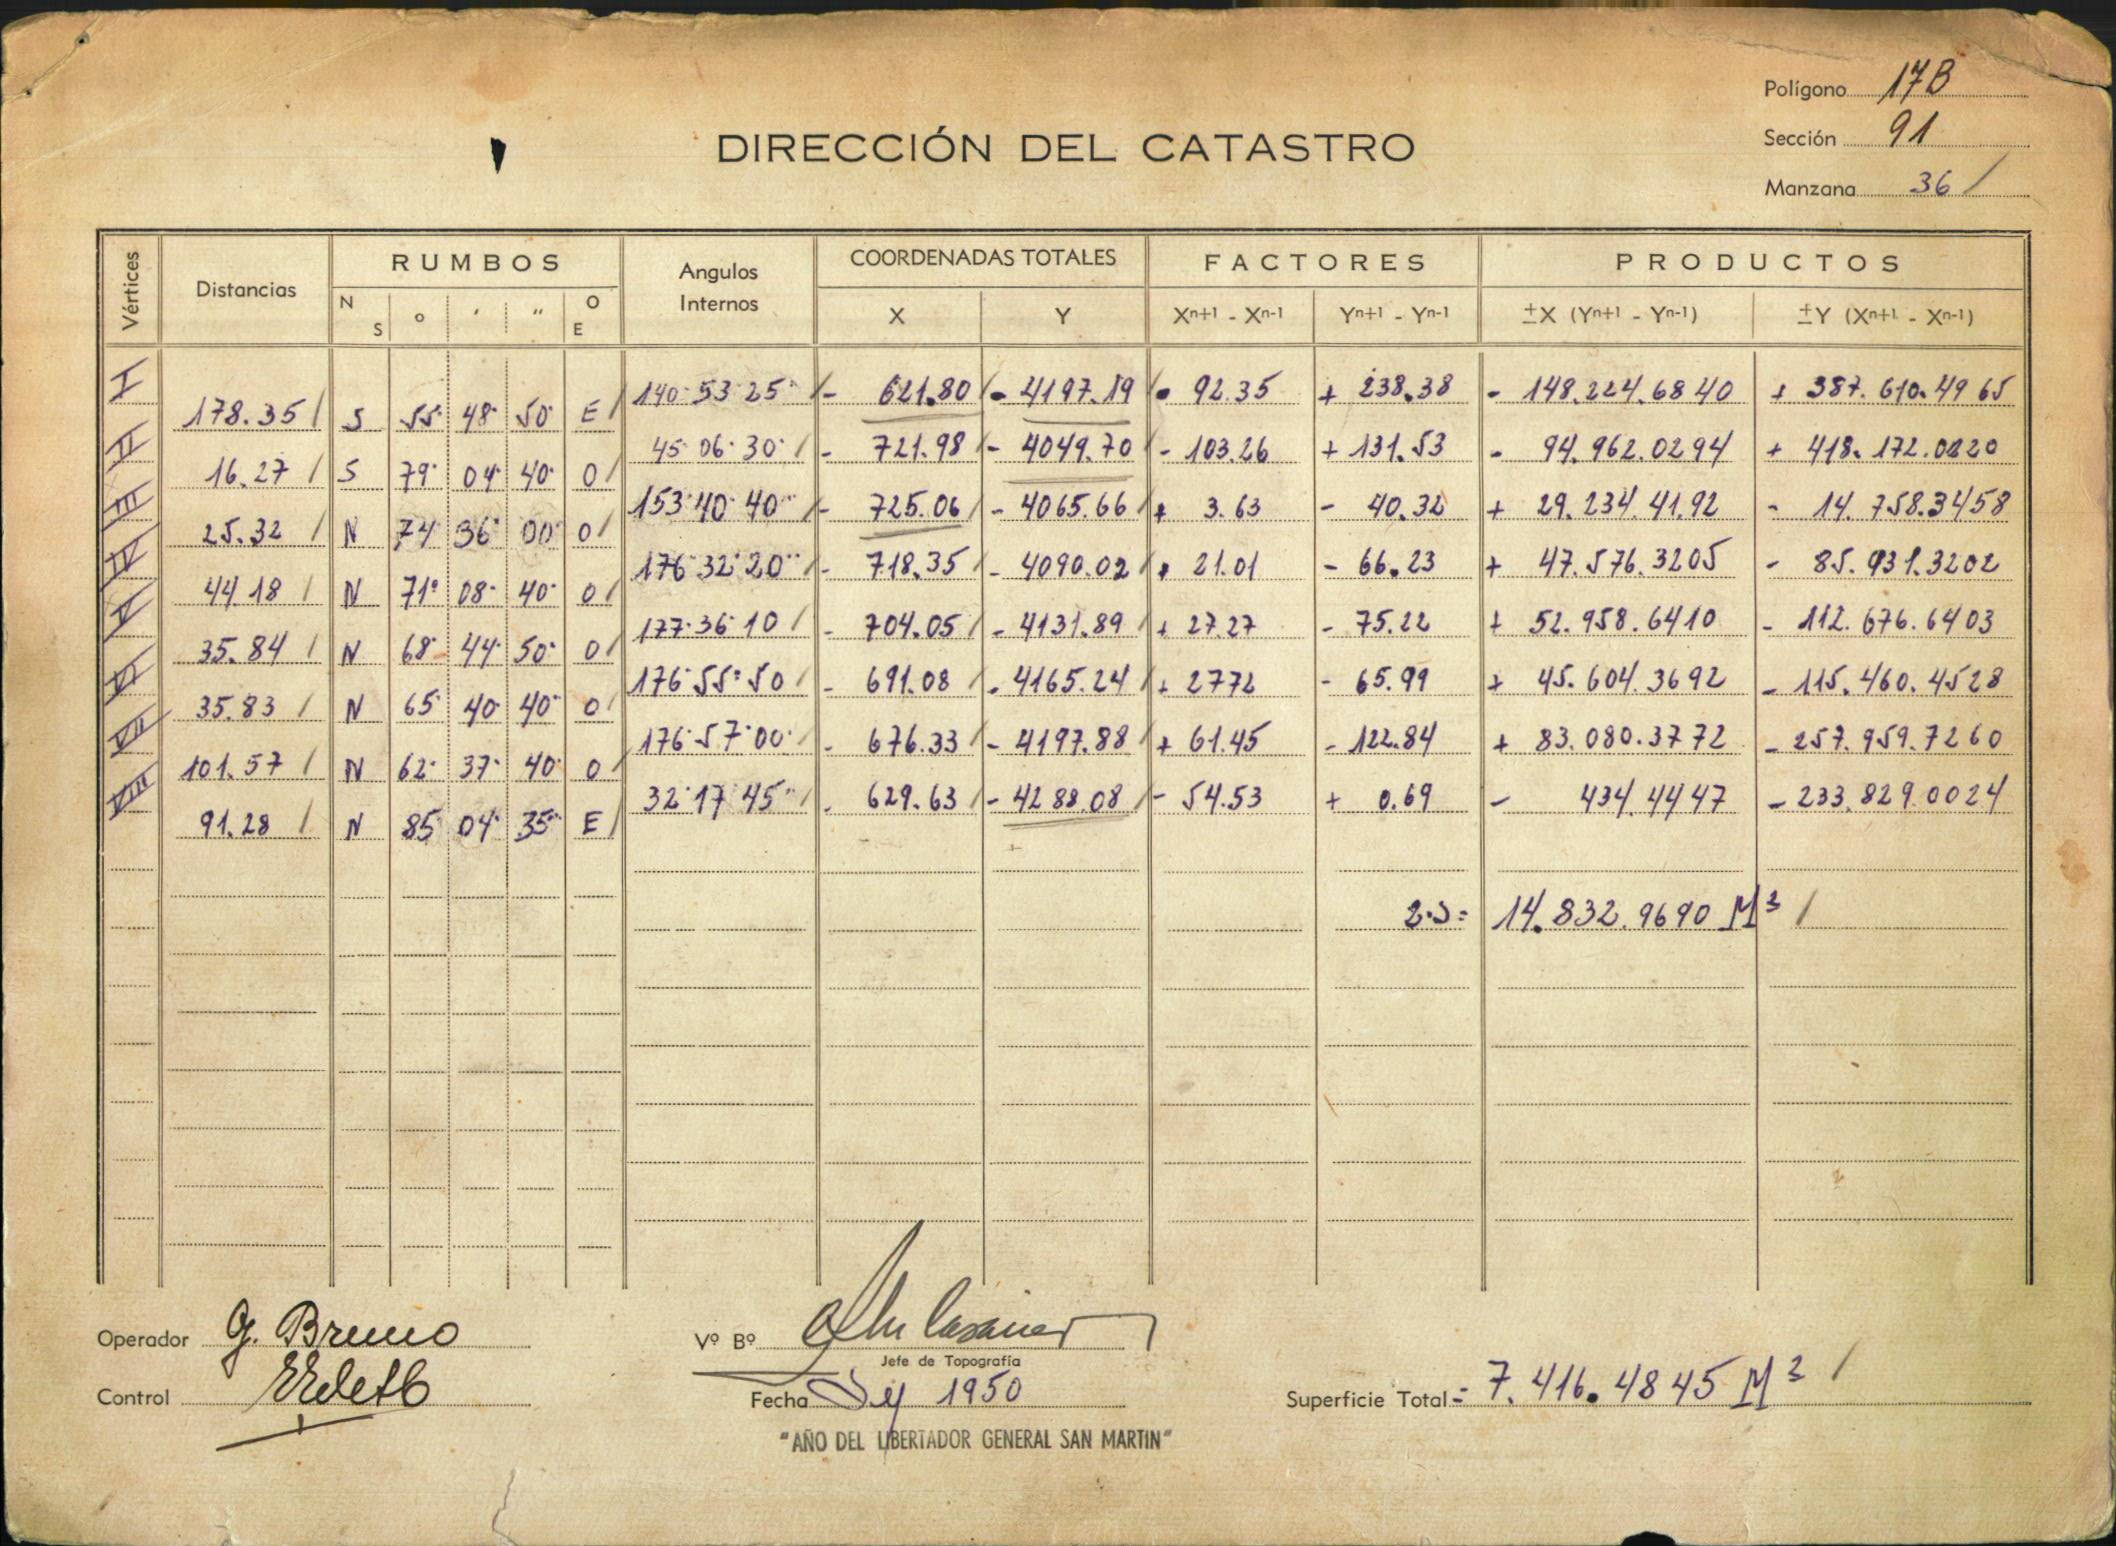 Polígono 17B
DIRECCIÓN DEL CATASTRO
Sección 91
Manzana 36 /
Vértices Distancias RUMBOS Angulos Internos COORDENADAS TOTALES FACTORES PRODUCTOS
N S ° ' " O E X Y Xn+1 - Xn-1 Yn+1 - Yn-1 ±X (Yn+1 - Yn-1) ±Y (Xn+1 - Xn-1)
I 140° 53' 25" - 621.80 / - 4197.19 / - 92.35 + 238.38 - 148.224.6840 + 387.610.4965
178.35 / S 55° 48' 50" E /
II 45° 06' 30" / - 721.98 / - 4049.70 / - 103.26 + 131.53 - 94.962.0294 + 418.172.0220
16.27 / S 79° 04' 40" O /
III 153° 40' 40" / - 725.06 / - 4065.66 / + 3.63 - 40.32 + 29.234.4192 - 14.758.3458
25.32 / N 74° 36' 00" O /
IV 176° 32' 20" / - 718.35 / - 4090.02 / + 21.01 - 66.23 + 47.576.3205 - 85.931.3202
44 18 / N 71° 08' 40" O /
V 177° 36' 10 / - 704.05 / - 4131.89 / + 27.27 - 75.22 + 52.958.6410 - 112.676.6403
35.84 / N 68° 44' 50" O /
VI 176° 55' 50 / - 691.08 / - 4165.24 / + 2772 - 65.99 + 45.604.3692 - 115.460.4528
35.83 / N 65° 40' 40" O /
VII 176° 57' 00" / - 676.33 / - 4197.88 / + 61.45 - 122.84 + 83.080.3772 - 257.959.7260
101.57 / N 62° 37' 40" O /
VIII 32° 17' 45" / - 629.63 / - 4288.08 / - 54.53 + 0.69 - 434.4447 - 233.829.0024
91.28 / N 85° 04' 35" E /
2.S = 14.832.9690 M² /
Operador G. Bruno
Vº Bº
Jefe de Topografía
Control
Fecha 1950
Superficie Total = 7.416.4845 M² /
"AÑO DEL LIBERTADOR GENERAL SAN MARTIN"